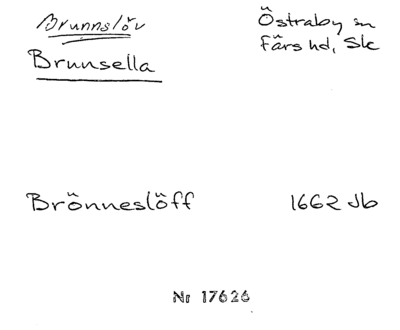 Brunnslöv
Östraby sn
Färs hd, Sk
Brunsella
Brönneslöff 1662 Jb
Nr 17626